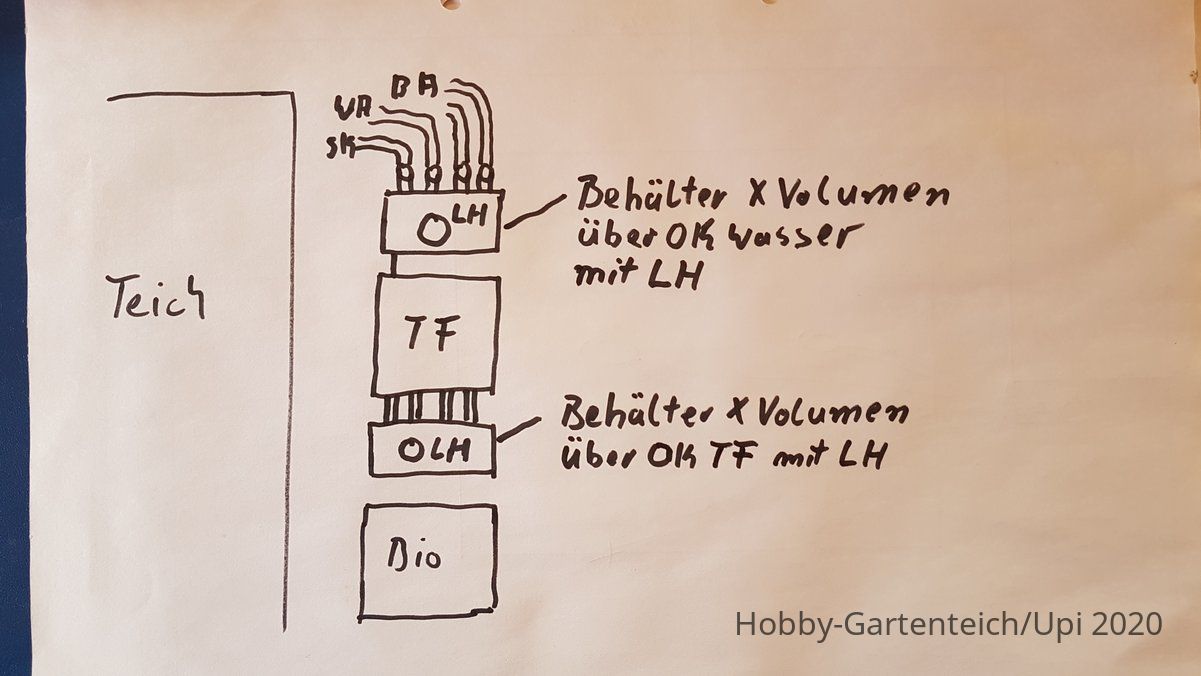 BA
VA
SK
LH
Behälter X Volumen
über OK Wasser
mit LH
Teich
TF
Behälter X Volumen
über OK TF mit LH
LH
Bio
Hobby-Gartenteich/Upi 2020